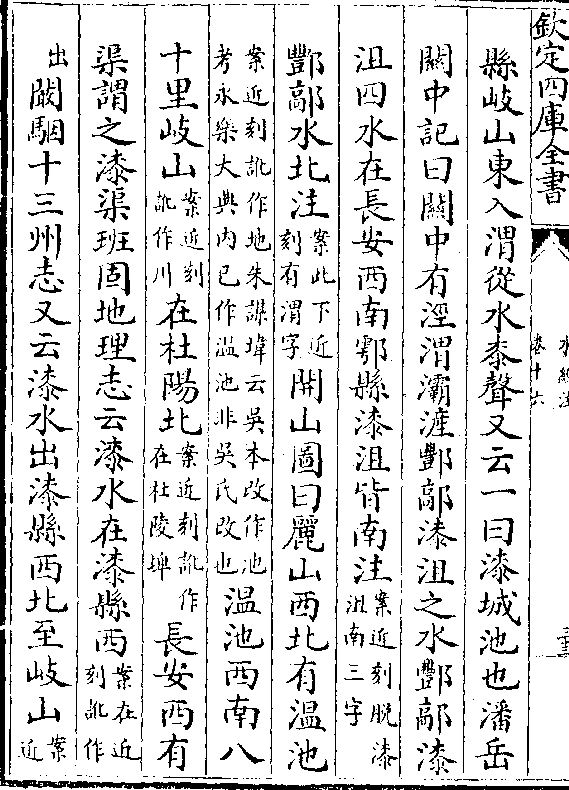 欽定四庫全書
水經注
卷十六
縣岐山東入渭從水桼聲又云一曰漆城池也潘岳
關中記曰關中有涇渭灞滻酆鄗漆沮之水酆鄗漆
沮四水在長安西南鄠縣漆沮皆南注案近刻脫漆沮南三字
酆鄗水北注案此下近刻有渭字開山圖曰麗山西北有温池
案近刻訛作地朱謀㙔云吳本改作池考永樂大典内已作温池非吳氏改也温池西南八
十里岐山案近刻訛作川在杜陽北案近刻訛作在杜陵埤長安西有
渠謂之漆渠班固地理志云漆水在漆縣西案在近刻訛作
出闞駰十三州志又云漆水出漆縣西北至岐山案近